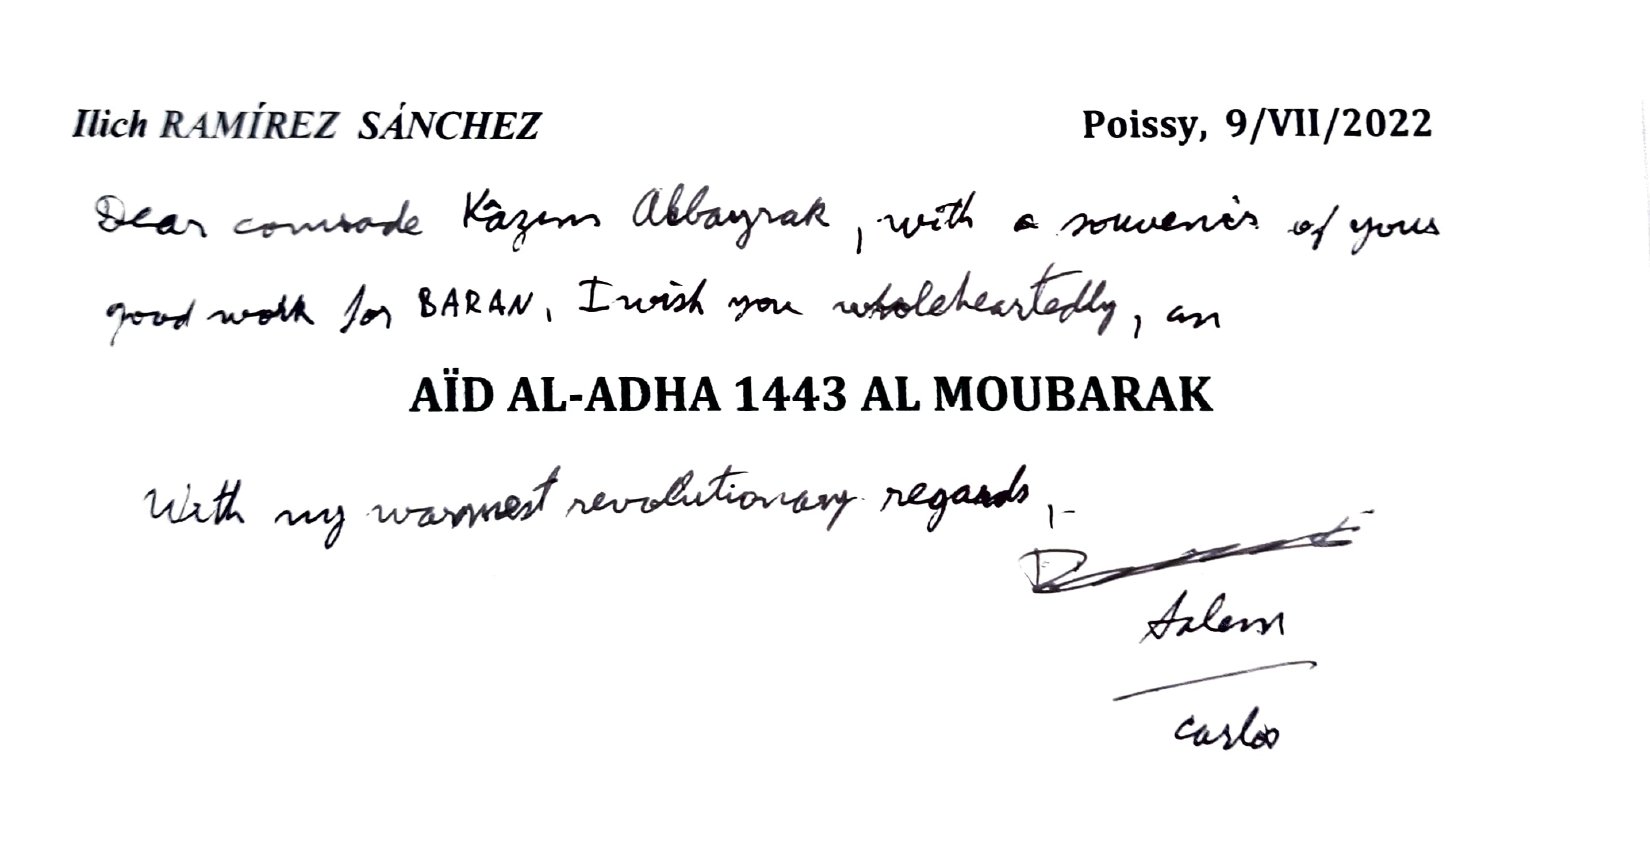 Ilich RAMÍREZ SÁNCHEZ Poissy, 9/VII/2022
Dear comrade Kâzım Albayrak, with a souvenir of your
good work for BARAN, I wish you wholeheartedly, an
AÏD AL-ADHA 1443 AL MOUBARAK
With my warmest revolutionary regards,
Salem
Carlos